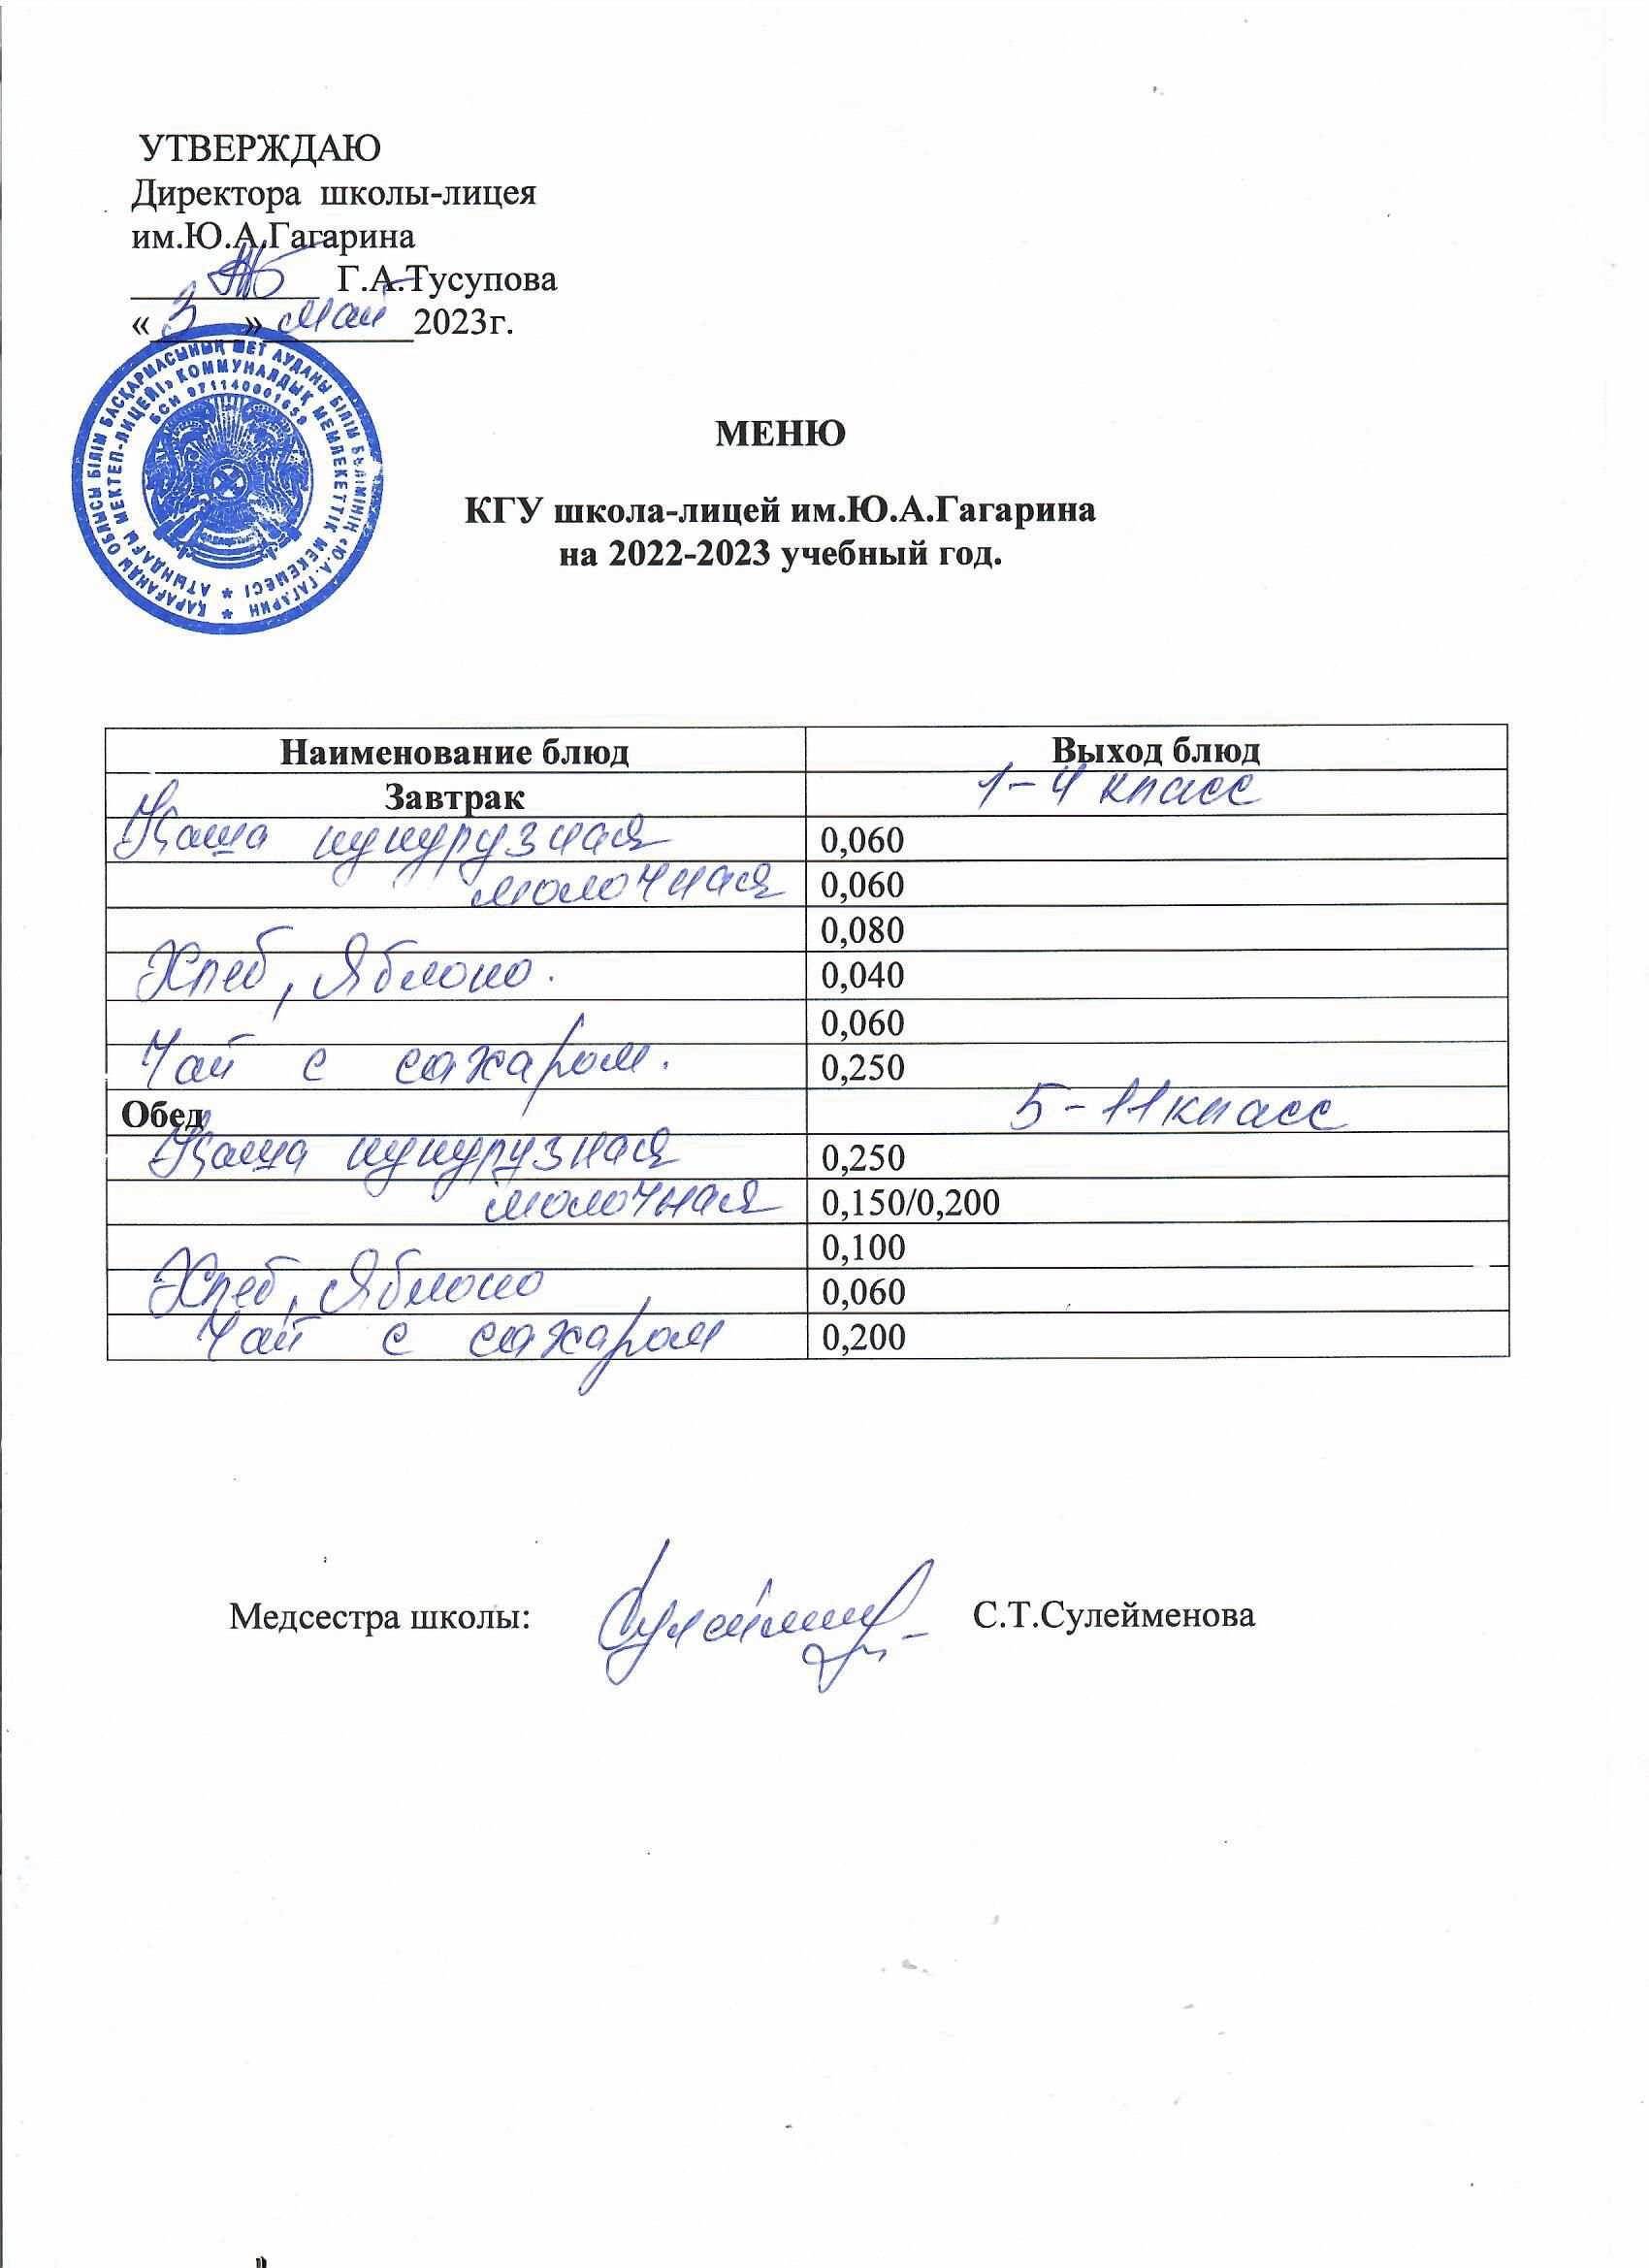 УТВЕРЖДАЮ
Директора школы-лицея
им.Ю.А.Гагарина
Г.А.Тусупова
«3» май 2023г.
ҚАРАҒАНДЫ ОБЛЫСЫ БІЛІМ БАСҚАРМАСЫНЫҢ ШЕТ АУДАНЫ БІЛІМ БӨЛІМІНІҢ «Ю.А. ГАГАРИН
АТЫНДАҒЫ МЕКТЕП-ЛИЦЕЙІ» КОММУНАЛДЫҚ МЕМЛЕКЕТТІК МЕКЕМЕСІ
БСН
МЕНЮ
КГУ школа-лицей им.Ю.А.Гагарина
на 2022-2023 учебный год.
Наименование блюд Выход блюд
Завтрак 1-4 класс
Каша кукурузная 0,060
молочная 0,060
0,080
Хлеб, Яблоко. 0,040
0,060
Чай с сахаром. 0,250
Обед 5-11 класс
Каша кукурузная 0,250
молочная 0,150/0,200
0,100
Хлеб, Яблоко 0,060
Чай с сахаром 0,200
Медсестра школы: С.Т.Сулейменова